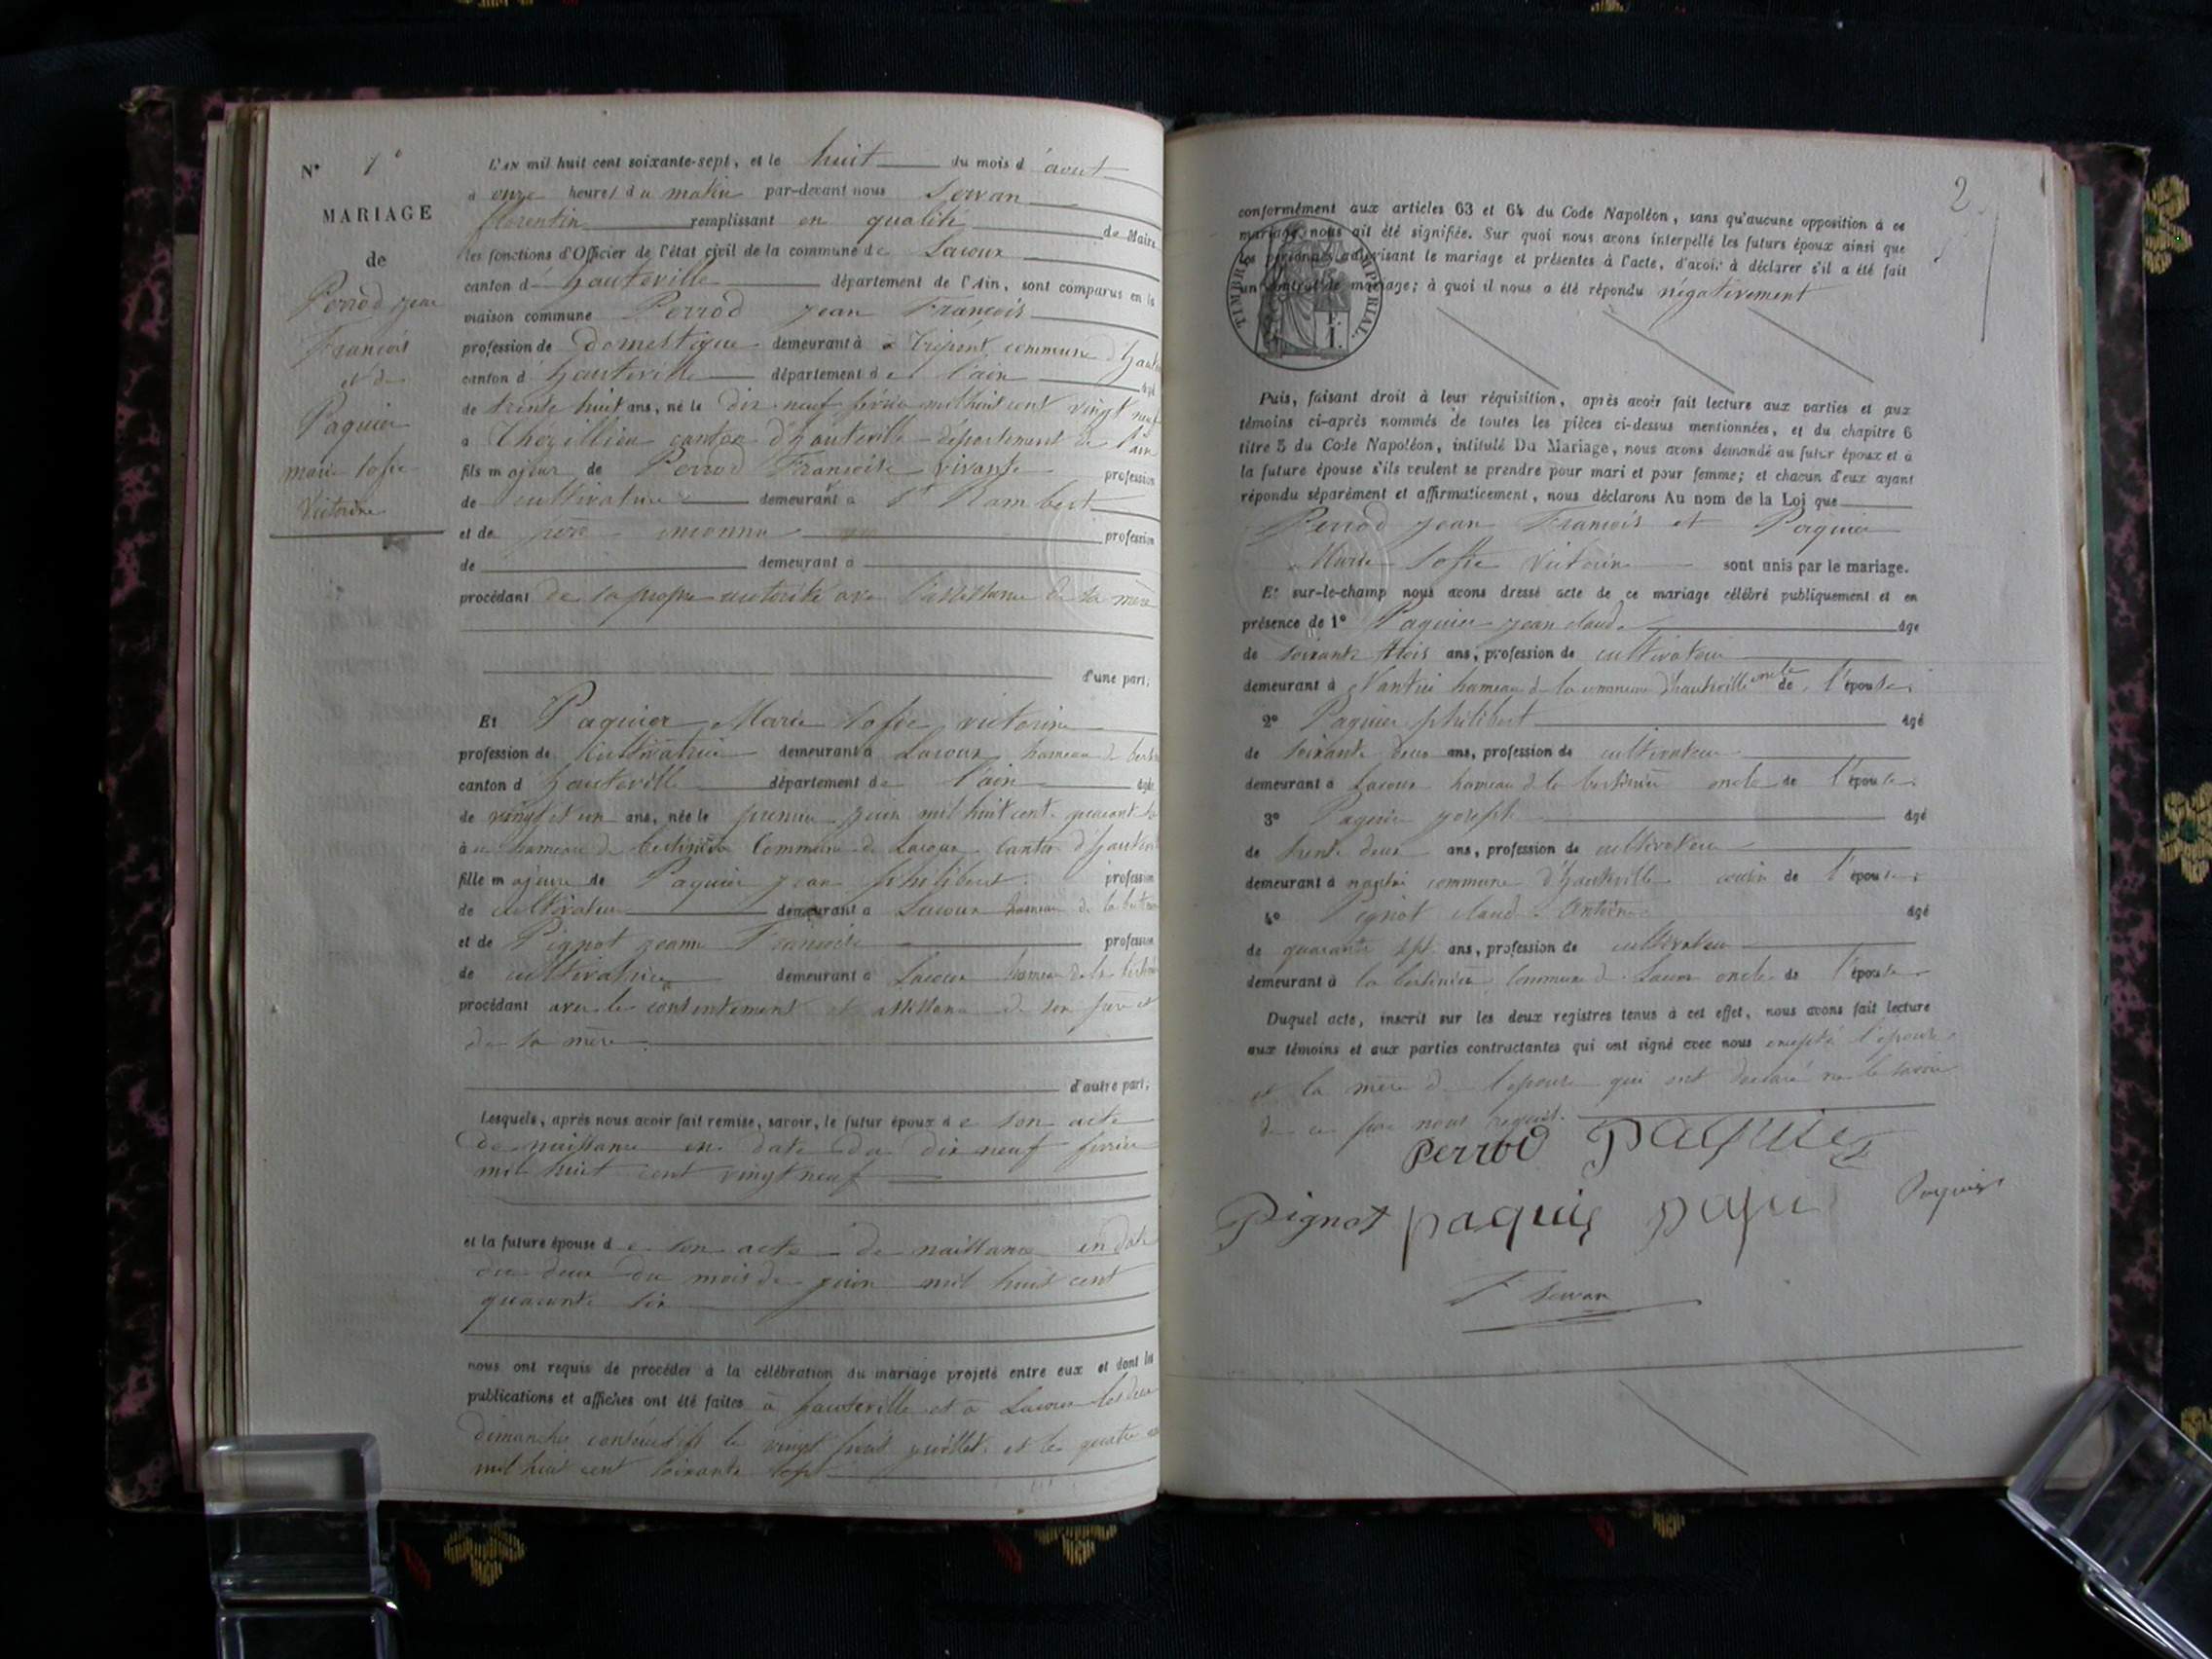 N° 1°
MARIAGE
de
Perrod jean
François
et de
Paquier
marie sofie
Victorine
L'AN mil huit cent soixante-sept, et le huit du mois d'aout
à onze heures du matin par-devant nous Servan
florentin remplissant en qualité de Maire
les fonctions d'Officier de l'état civil de la commune de Lacoux
canton d'hauteville département de l'Ain, sont comparus en la
maison commune Perrod jean François
profession de Domestique demeurant à Trépont commune d'haut
canton d'hauteville département de l'ain âgé
de trente huit ans, né le dix neuf fevrier mil huit cent vingt neuf
à Thézillieu canton d'hauteville département de l'ain
fils majeur de Perrod Françoise vivante profession
de cultivatrice demeurant à St Rambert
et de père inconnu profession
de demeurant à
procédant de sa propre autorité avec l'assistance de sa mère
d'une part;
Et Paquier Marie sofie victorine
profession de Cultivatrice demeurant à Lacoux hameau de
canton d'hauteville département de l'ain âgée
de vingt et un ans, née le premier juin mil huit cent quarant
à hameau de Commune de Lacoux Canton d'hautevil
fille majeure de Paquier jean philibert profession
de cultivateur demeurant à Lacoux hameau de la
et de Pignot jeanne Françoise profession
de cultivatrice demeurant à Lacoux hameau de la
procédant avec le consentement et assistance de son père et
de sa mère
d'autre part;
Lesquels, après nous avoir fait remise, savoir, le futur époux de son acte
de naissance en date du dix neuf fevrier
mil huit cent vingt neuf
et la future épouse de son acte de naissance en date
du deux du mois de juin mil huit cent
quarante six
nous ont requis de procéder à la célébration du mariage projeté entre eux et dont les
publications et affiches ont été faites à hauteville et à Lacoux les deux
dimanches consécutifs le vingt huit juillet et le quatre
mil huit cent soixante sept
2
conformément aux articles 63 et 64 du Code Napoléon, sans qu'aucune opposition à ce
mariage nous ait été signifiée. Sur quoi nous avons interpellé les futurs époux ainsi que
les personnes autorisant le mariage et présentes à l'acte, d'avoir à déclarer s'il a été fait
un contrat de mariage; à quoi il nous a été répondu négativement
TIMBRE IMPÉRIAL.
Puis, faisant droit à leur réquisition, après avoir fait lecture aux parties et aux
témoins ci-après nommés de toutes les pièces ci-dessus mentionnées, et du chapitre 6
titre 5 du Code Napoléon, intitulé Du Mariage, nous avons demandé au futur époux et à
la future épouse s'ils veulent se prendre pour mari et pour femme; et chacun d'eux ayant
répondu séparément et affirmativement, nous déclarons Au nom de la Loi que
Perrod jean François et Paquier
Marie Sofie Victorine sont unis par le mariage.
Et sur-le-champ nous avons dressé acte de ce mariage célébré publiquement et en
présence de 1° Paquier jean claude âgé
de soixante trois ans, profession de cultivateur
demeurant à Nantui hameau de la commune d'hauteville oncle de l'épouse;
2° Paquier philibert âgé
de soixante deux ans, profession de cultivateur
demeurant à Lacoux hameau de la oncle de l'épouse;
3° Paquier joseph âgé
de trente deux ans, profession de cultivateur
demeurant à nantui commune d'hauteville cousin de l'épouse;
4° Pignot claude Antoine âgé
de quarante sept ans, profession de cultivateur
demeurant à la commune de Lacoux oncle de l'épouse
Duquel acte, inscrit sur les deux registres tenus à cet effet, nous avons fait lecture
aux témoins et aux parties contractantes qui ont signé avec nous excepté l'épouse
et la mère de l'epouse qui ont declaré ne le savoir
de ce faire nous requis.
Perrod Paquier
Pignot paquier Paquier
F Servan